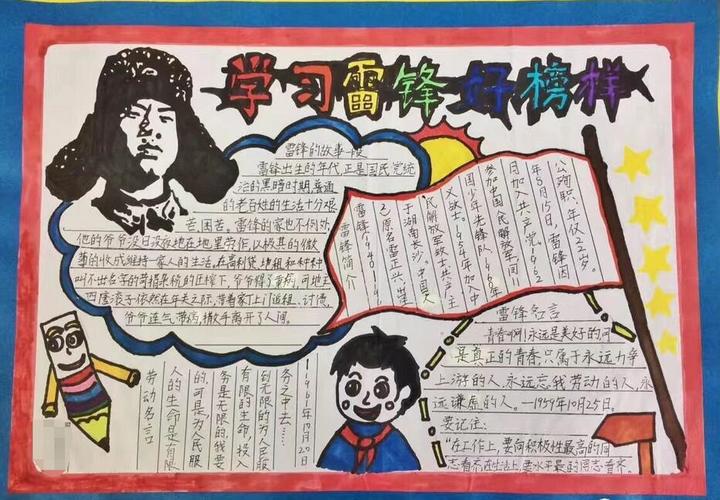 学习雷锋好榜样
雷锋的故事一段
雷锋出生的年代正是国民党统
治的黑暗时期,普通
的老百姓的生活十分艰
苦、困苦。雷锋的家也不例外
他的爷爷没日没夜地在地里劳作,以极其的微
薄的收成维持一家人的生活。在高利贷
叫不出名字的苛捐杂税的压榨下,爷爷得了重病,可地主
依然在年关之际,带着家丁上门逼租、讨债
爷爷连气带病,撒手离开了人间。
雷锋简介
雷锋(1940—19
公殉职,年仅22岁。
年8月15日,雷锋因
日加入共产党,1962
参加中国人民解放军,同11
国少年先锋队,1960年
义战士。1954年加入中
民解放军战士,共产主
于湖南长沙。中国人
),原名雷正兴,出生
雷锋名言
青春啊,永远是美好的,可
是真正的青春,只属于永远力争
上游的人,永远忘我劳动的人,永
远谦虚的人。—1959年10月25日。
要记住:
“在工作上,要向积极性最高的同
志看齐,在生活上,要水平最的同志看齐。
劳动名言
人的生命是有限
的,可是,为人民服
务是无限的,我要
有限的生命,投入
到无限的为人民服
务之中去……
1961年10月20日